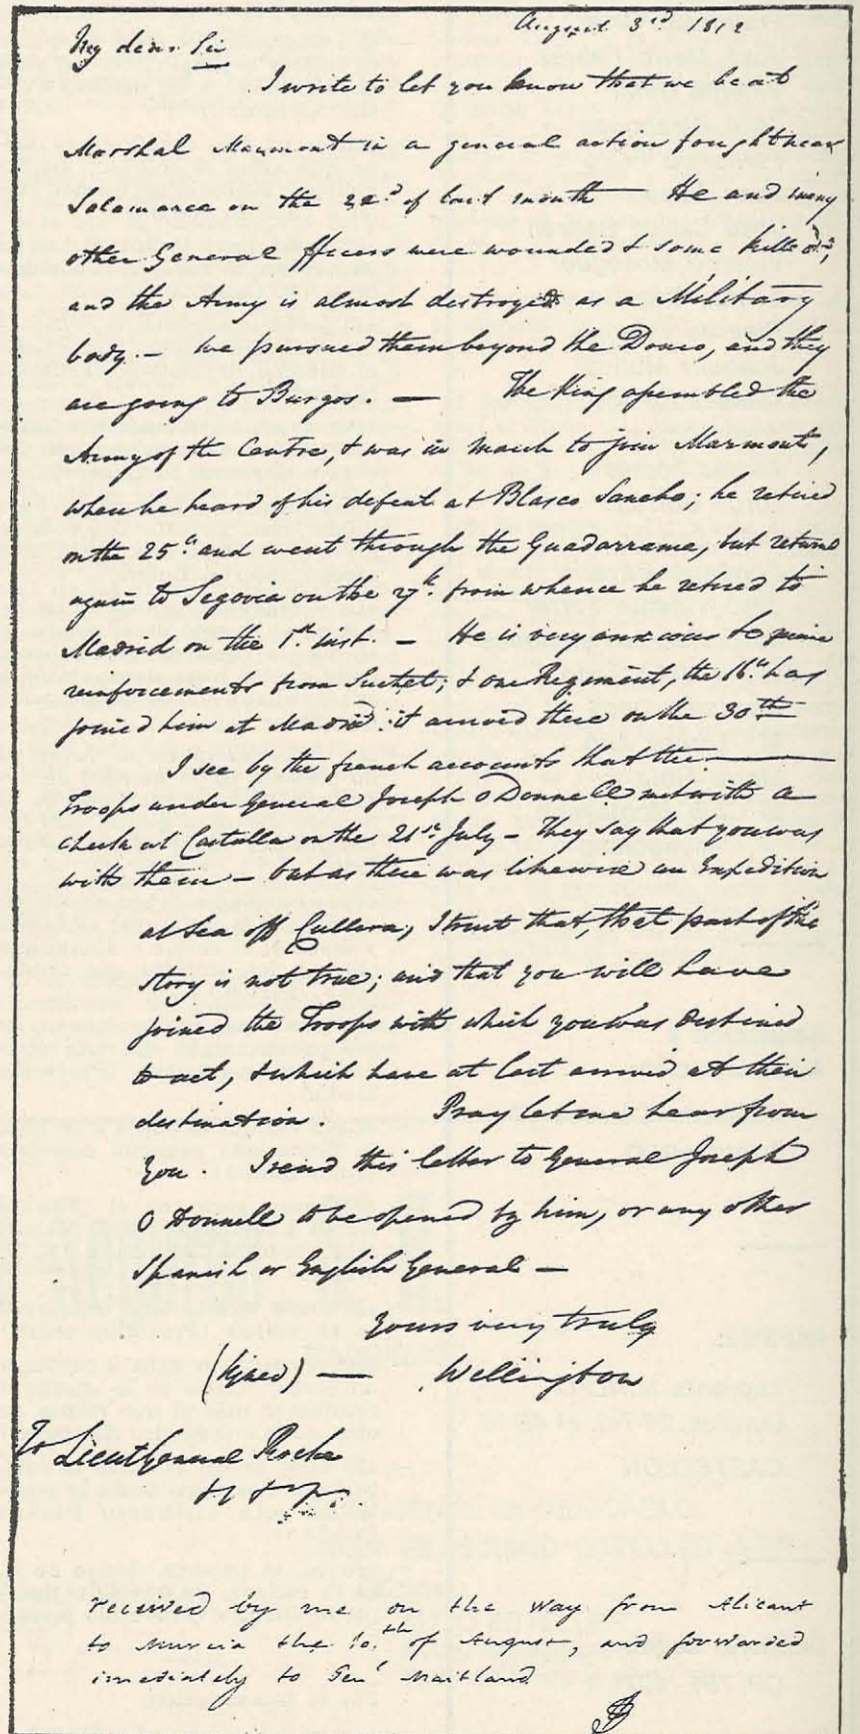 August 3rd 1812
My dear Sir
I write to let you know that we beat
Marshal Marmont in a general action fought near
Salamanca on the 22d of last month — He and many
other General officers were wounded & some killed,
and the Army is almost destroyed as a Military
body. — We pursued them beyond the Douro, and they
are going to Burgos. — The King assembled the
Army of the Centre, & was in march to join Marmont,
when he heard of his defeat at Blasco Sancho; he retired
on the 25th and went through the Guadarrama, but returned
again to Segovia on the 27th. from whence he retired to
Madrid on the 1st. inst. — He is very anxious to
reinforcements from Suchet; & one Regiment, the 16th has
joined him at Madrid: it arrived there on the 30th
I see by the french accounts that the —
Troops under General Joseph O Donnell met with a
check at Castalla on the 21st July — They say that you was
with them — but as there was likewise an Expedition
at Sea off Cullera, I trust that, that part of the
story is not true; and that you will have
joined the Troops with which you was destined
to act, & which have at last arrived at their
destination. Pray let me hear from
you. I send this letter to General Joseph
O Donnell to be opened by him, or any other
Spanish or English General —
Yours very truly
(Signed) — Wellington
To Lieut General Roche
received by me on the way from Alicant
to Murcia the 10th of August, and forwarded
imediately to Genl Maitland